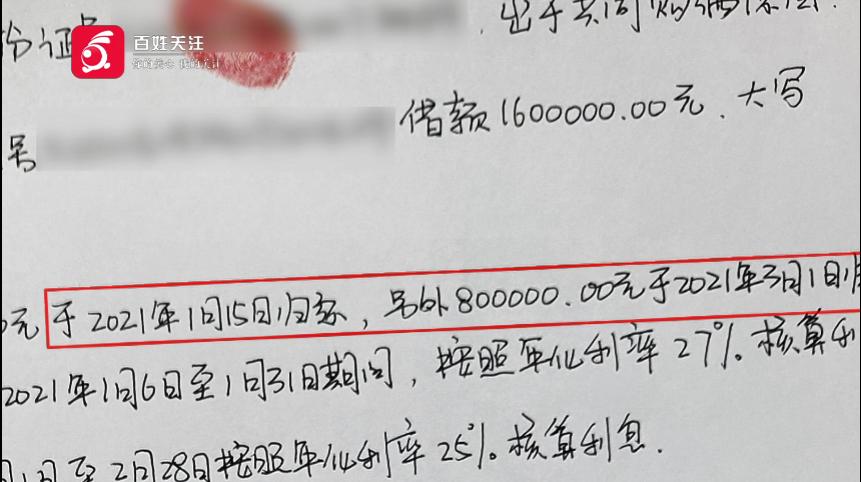 份证号
出于共同购
百姓关注
你的关心 我的关注
号
借款1600000.00元.大写
0元于2021年1月15日归还,另外800000.00元于2021年3月1日归
2021年1月6日至1月31日期间,按照年化利率27%.核算利
月1日至2月28日按照年化利率25%.核算利息.